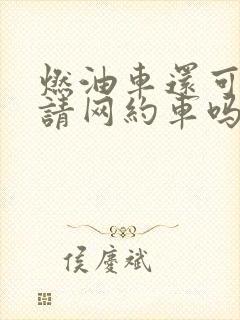 燃油車還可
請网約車吗
侯慶斌